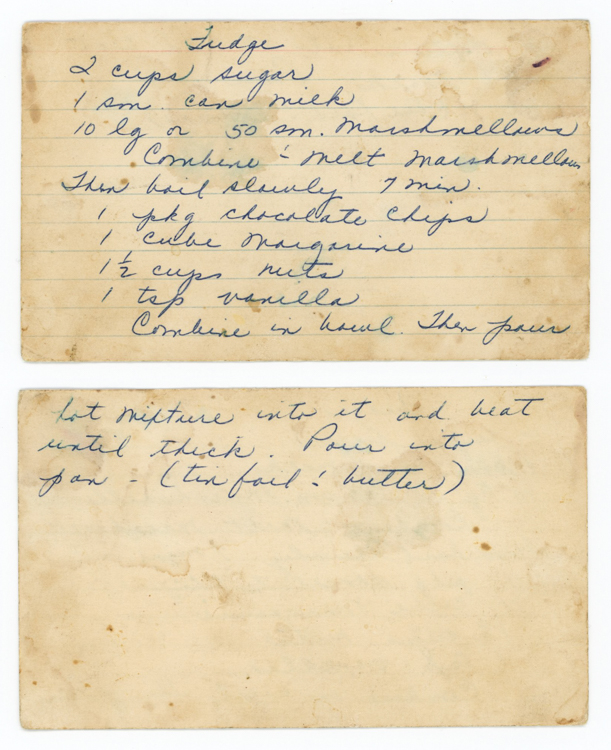 Fudge
2 cups sugar
1 sm. can milk
10 lg or 50 sm. Marshmellows
Combine & Melt Marshmellows
Then boil slowly 7 min.
1 pkg chocolate chips
1 cube Margarine
1 1/2 cups nuts
1 tsp vanilla
Combine in bowl. Then pour
hot mixture into it and beat
until thick. Pour into
pan - (tin foil & butter)